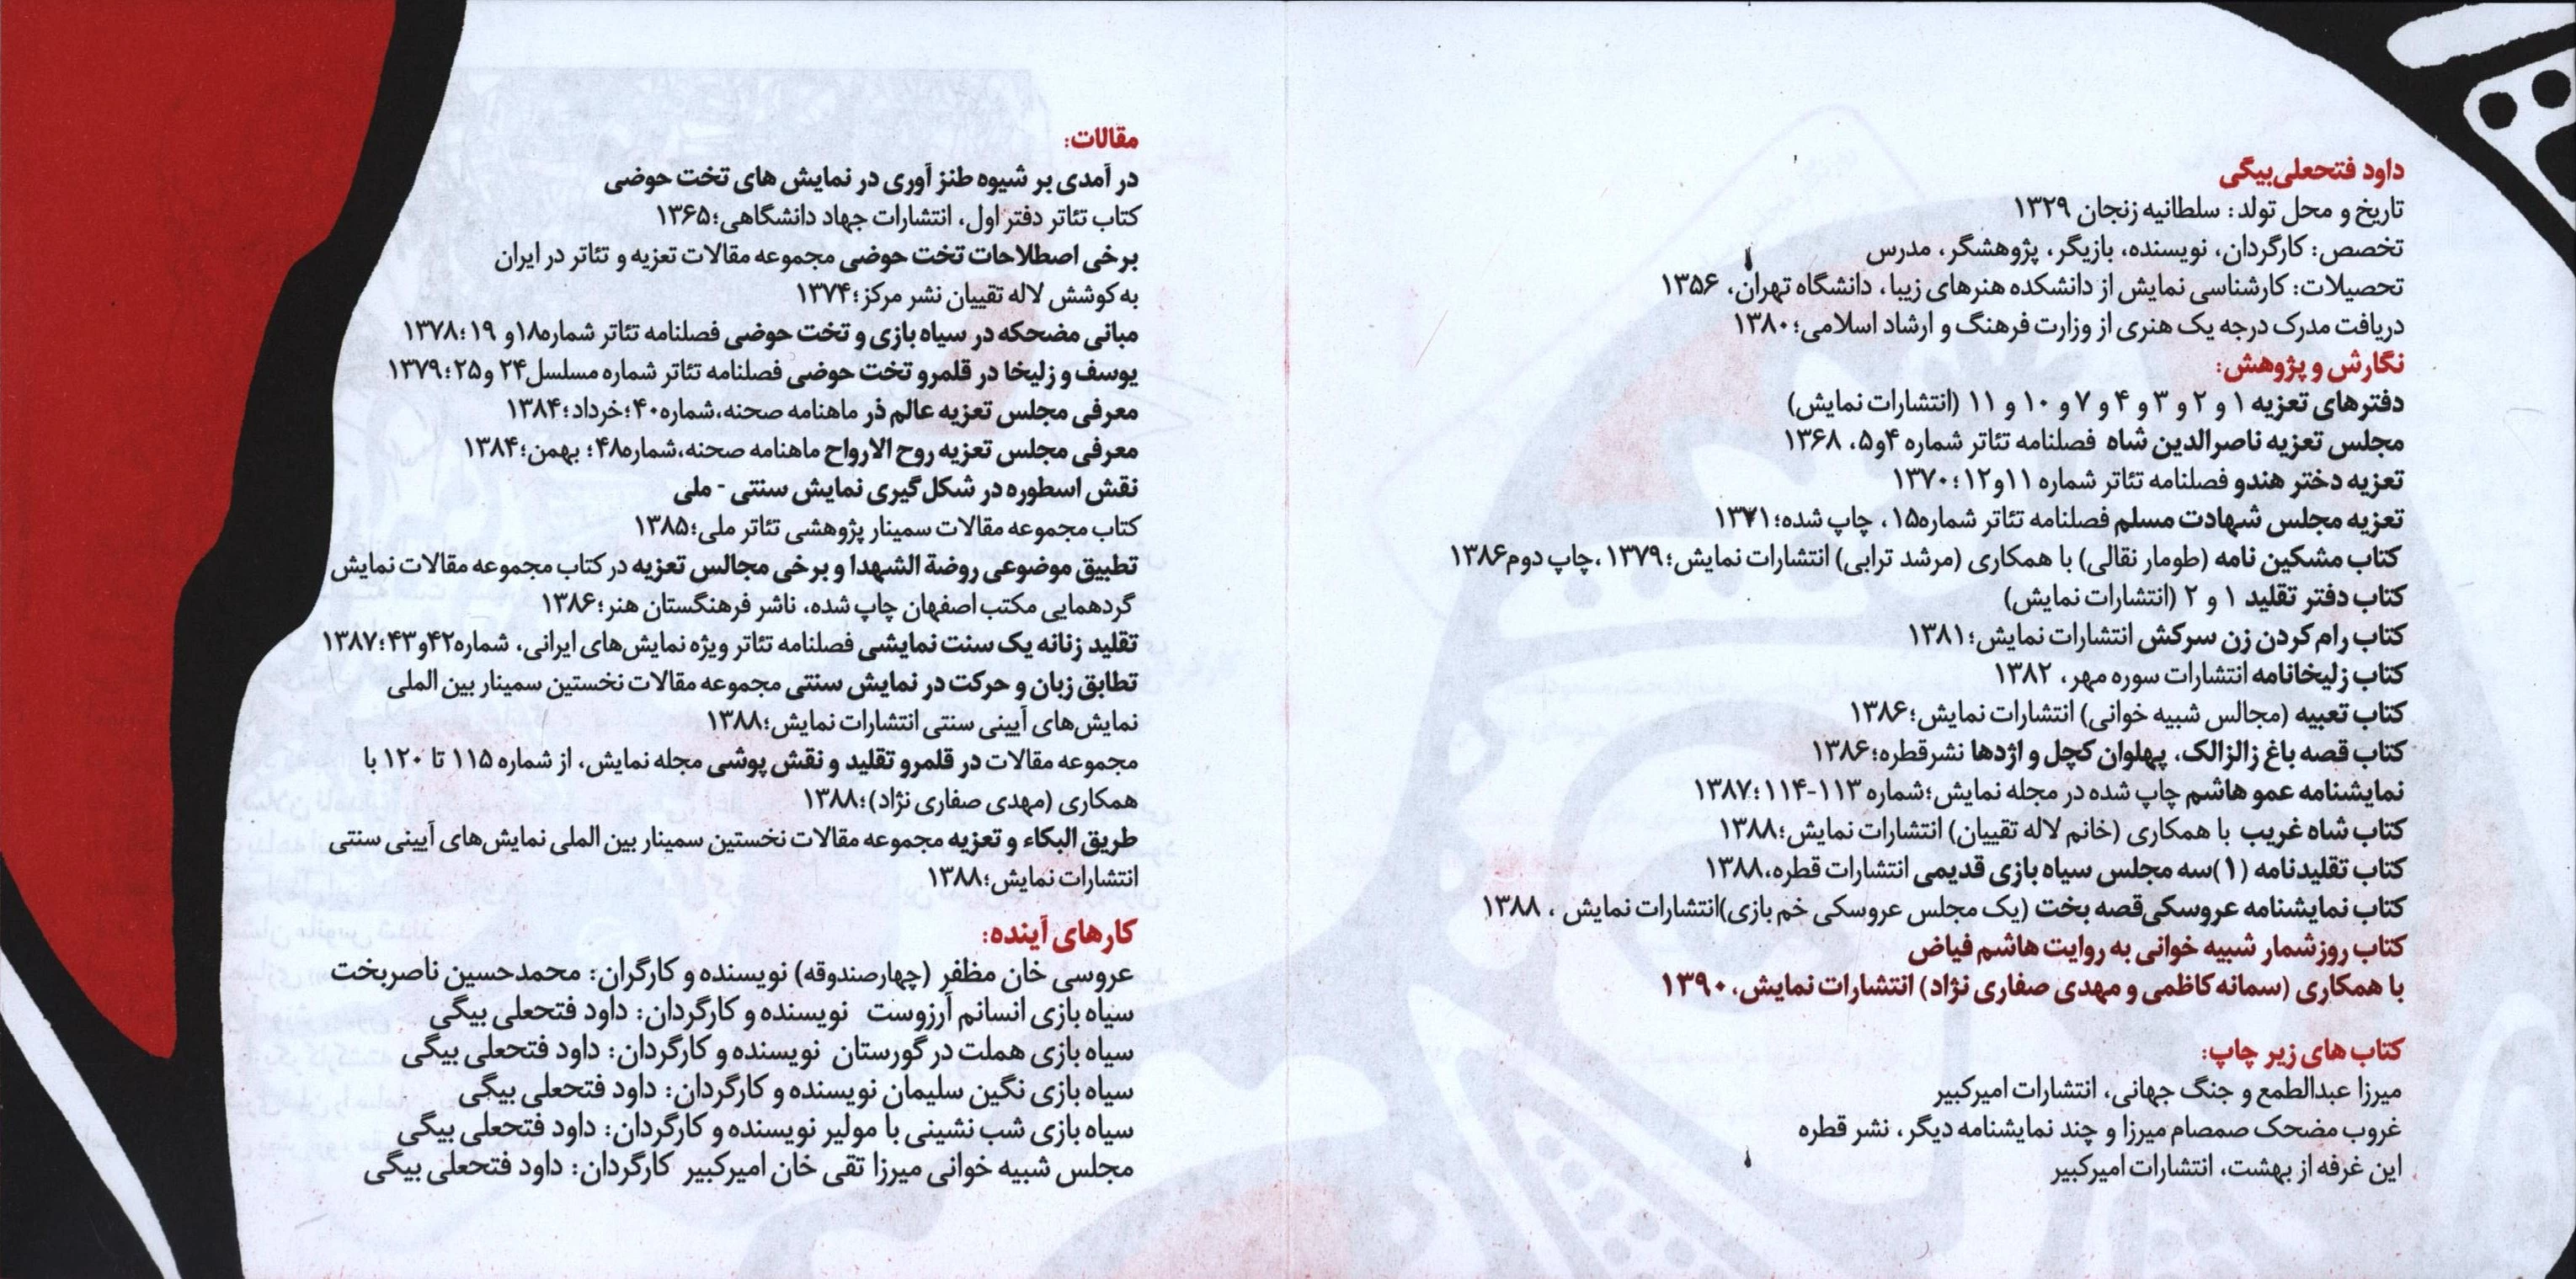 داود فتحعلی‌بیگی
تاریخ و محل تولد: سلطانیه زنجان ۱۳۲۹
تخصص: کارگردان، نویسنده، بازیگر، پژوهشگر، مدرس
تحصیلات: کارشناسی نمایش از دانشکده هنرهای زیبا، دانشگاه تهران، ۱۳۵۶
دریافت مدرک درجه یک هنری از وزارت فرهنگ و ارشاد اسلامی؛۱۳۸۰
نگارش و پژوهش:
دفترهای تعزیه ۱ و ۲ و ۳ و ۴ و ۷ و ۱۰ و ۱۱ (انتشارات نمایش)
مجلس تعزیه ناصرالدین شاه فصلنامه تئاتر شماره ۴و۵، ۱۳۶۸
تعزیه دختر هندو فصلنامه تئاتر شماره ۱۱و۱۲؛۱۳۷۰
تعزیه مجلس شهادت مسلم فصلنامه تئاتر شماره۱۵، چاپ شده؛۱۳۷۱
کتاب مشکین نامه (طومار نقالی) با همکاری (مرشد ترابی) انتشارات نمایش؛۱۳۷۹ ،چاپ دوم۱۳۸۶
کتاب دفتر تقلید ۱ و ۲ (انتشارات نمایش)
کتاب رام کردن زن سرکش انتشارات نمایش؛۱۳۸۱
کتاب زلیخانامه انتشارات سوره مهر، ۱۳۸۲
کتاب تعبیه (مجالس شبیه خوانی) انتشارات نمایش؛۱۳۸۶
کتاب قصه باغ زالزالک، پهلوان کچل و اژدها نشرقطره؛۱۳۸۶
نمایشنامه عمو هاشم چاپ شده در مجله نمایش؛شماره ۱۱۳-۱۱۴؛۱۳۸۷
کتاب شاه غریب با همکاری (خانم لاله تقییان) انتشارات نمایش؛۱۳۸۸
کتاب تقلیدنامه (۱)سه مجلس سیاه بازی قدیمی انتشارات قطره،۱۳۸۸
کتاب نمایشنامه عروسکی‌قصه بخت (یک مجلس عروسکی خم بازی)انتشارات نمایش ، ۱۳۸۸
کتاب روزشمار شبیه خوانی به روایت هاشم فیاض
با همکاری (سمانه کاظمی و مهدی صفاری نژاد) انتشارات نمایش، ۱۳۹۰
کتاب های زیر چاپ:
میرزا عبدالطمع و جنگ جهانی، انتشارات امیرکبیر
غروب مضحک صمصام میرزا و چند نمایشنامه دیگر، نشر قطره
این غرفه از بهشت، انتشارات امیرکبیر
مقالات:
در آمدی بر شیوه طنز آوری در نمایش های تخت حوضی
کتاب تئاتر دفتر اول، انتشارات جهاد دانشگاهی؛۱۳۶۵
برخی اصطلاحات تخت حوضی مجموعه مقالات تعزیه و تئاتر در ایران
به کوشش لاله تقییان نشر مرکز؛۱۳۷۴
مبانی مضحکه در سیاه بازی و تخت حوضی فصلنامه تئاتر شماره۱۸و ۱۹؛۱۳۷۸
یوسف و زلیخا در قلمرو تخت حوضی فصلنامه تئاتر شماره مسلسل۲۴ و۲۵؛۱۳۷۹
معرفی مجلس تعزیه عالم ذر ماهنامه صحنه،شماره۴۰؛خرداد؛۱۳۸۴
معرفی مجلس تعزیه روح الارواح ماهنامه صحنه،شماره۴۸؛ بهمن؛۱۳۸۴
نقش اسطوره در شکل گیری نمایش سنتی - ملی
کتاب مجموعه مقالات سمینار پژوهشی تئاتر ملی؛۱۳۸۵
تطبیق موضوعی روضة الشهدا و برخی مجالس تعزیه در کتاب مجموعه مقالات نمایش
گردهمایی مکتب اصفهان چاپ شده، ناشر فرهنگستان هنر؛۱۳۸۶
تقلید زنانه یک سنت نمایشی فصلنامه تئاتر ویژه نمایش‌های ایرانی، شماره۴۲و۴۳؛۱۳۸۷
تطابق زبان و حرکت در نمایش سنتی مجموعه مقالات نخستین سمینار بین المللی
نمایش‌های آیینی سنتی انتشارات نمایش؛۱۳۸۸
مجموعه مقالات در قلمرو تقلید و نقش پوشی مجله نمایش، از شماره ۱۱۵ تا ۱۲۰ با
همکاری (مهدی صفاری نژاد)؛۱۳۸۸
طریق البکاء و تعزیه مجموعه مقالات نخستین سمینار بین المللی نمایش‌های آیینی سنتی
انتشارات نمایش؛۱۳۸۸
کارهای آینده:
عروسی خان مظفر (چهارصندوقه) نویسنده و کارگران: محمدحسین ناصربخت
سیاه بازی انسانم آرزوست نویسنده و کارگردان: داود فتحعلی بیگی
سیاه بازی هملت در گورستان نویسنده و کارگردان: داود فتحعلی بیگی
سیاه بازی نگین سلیمان نویسنده و کارگردان: داود فتحعلی بیگی
سیاه بازی شب نشینی با مولیر نویسنده و کارگردان: داود فتحعلی بیگی
مجلس شبیه خوانی میرزا تقی خان امیرکبیر کارگردان: داود فتحعلی بیگی